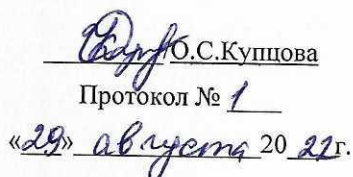 О.С.Купцова
Протокол № 1
«29» августа 2022г.